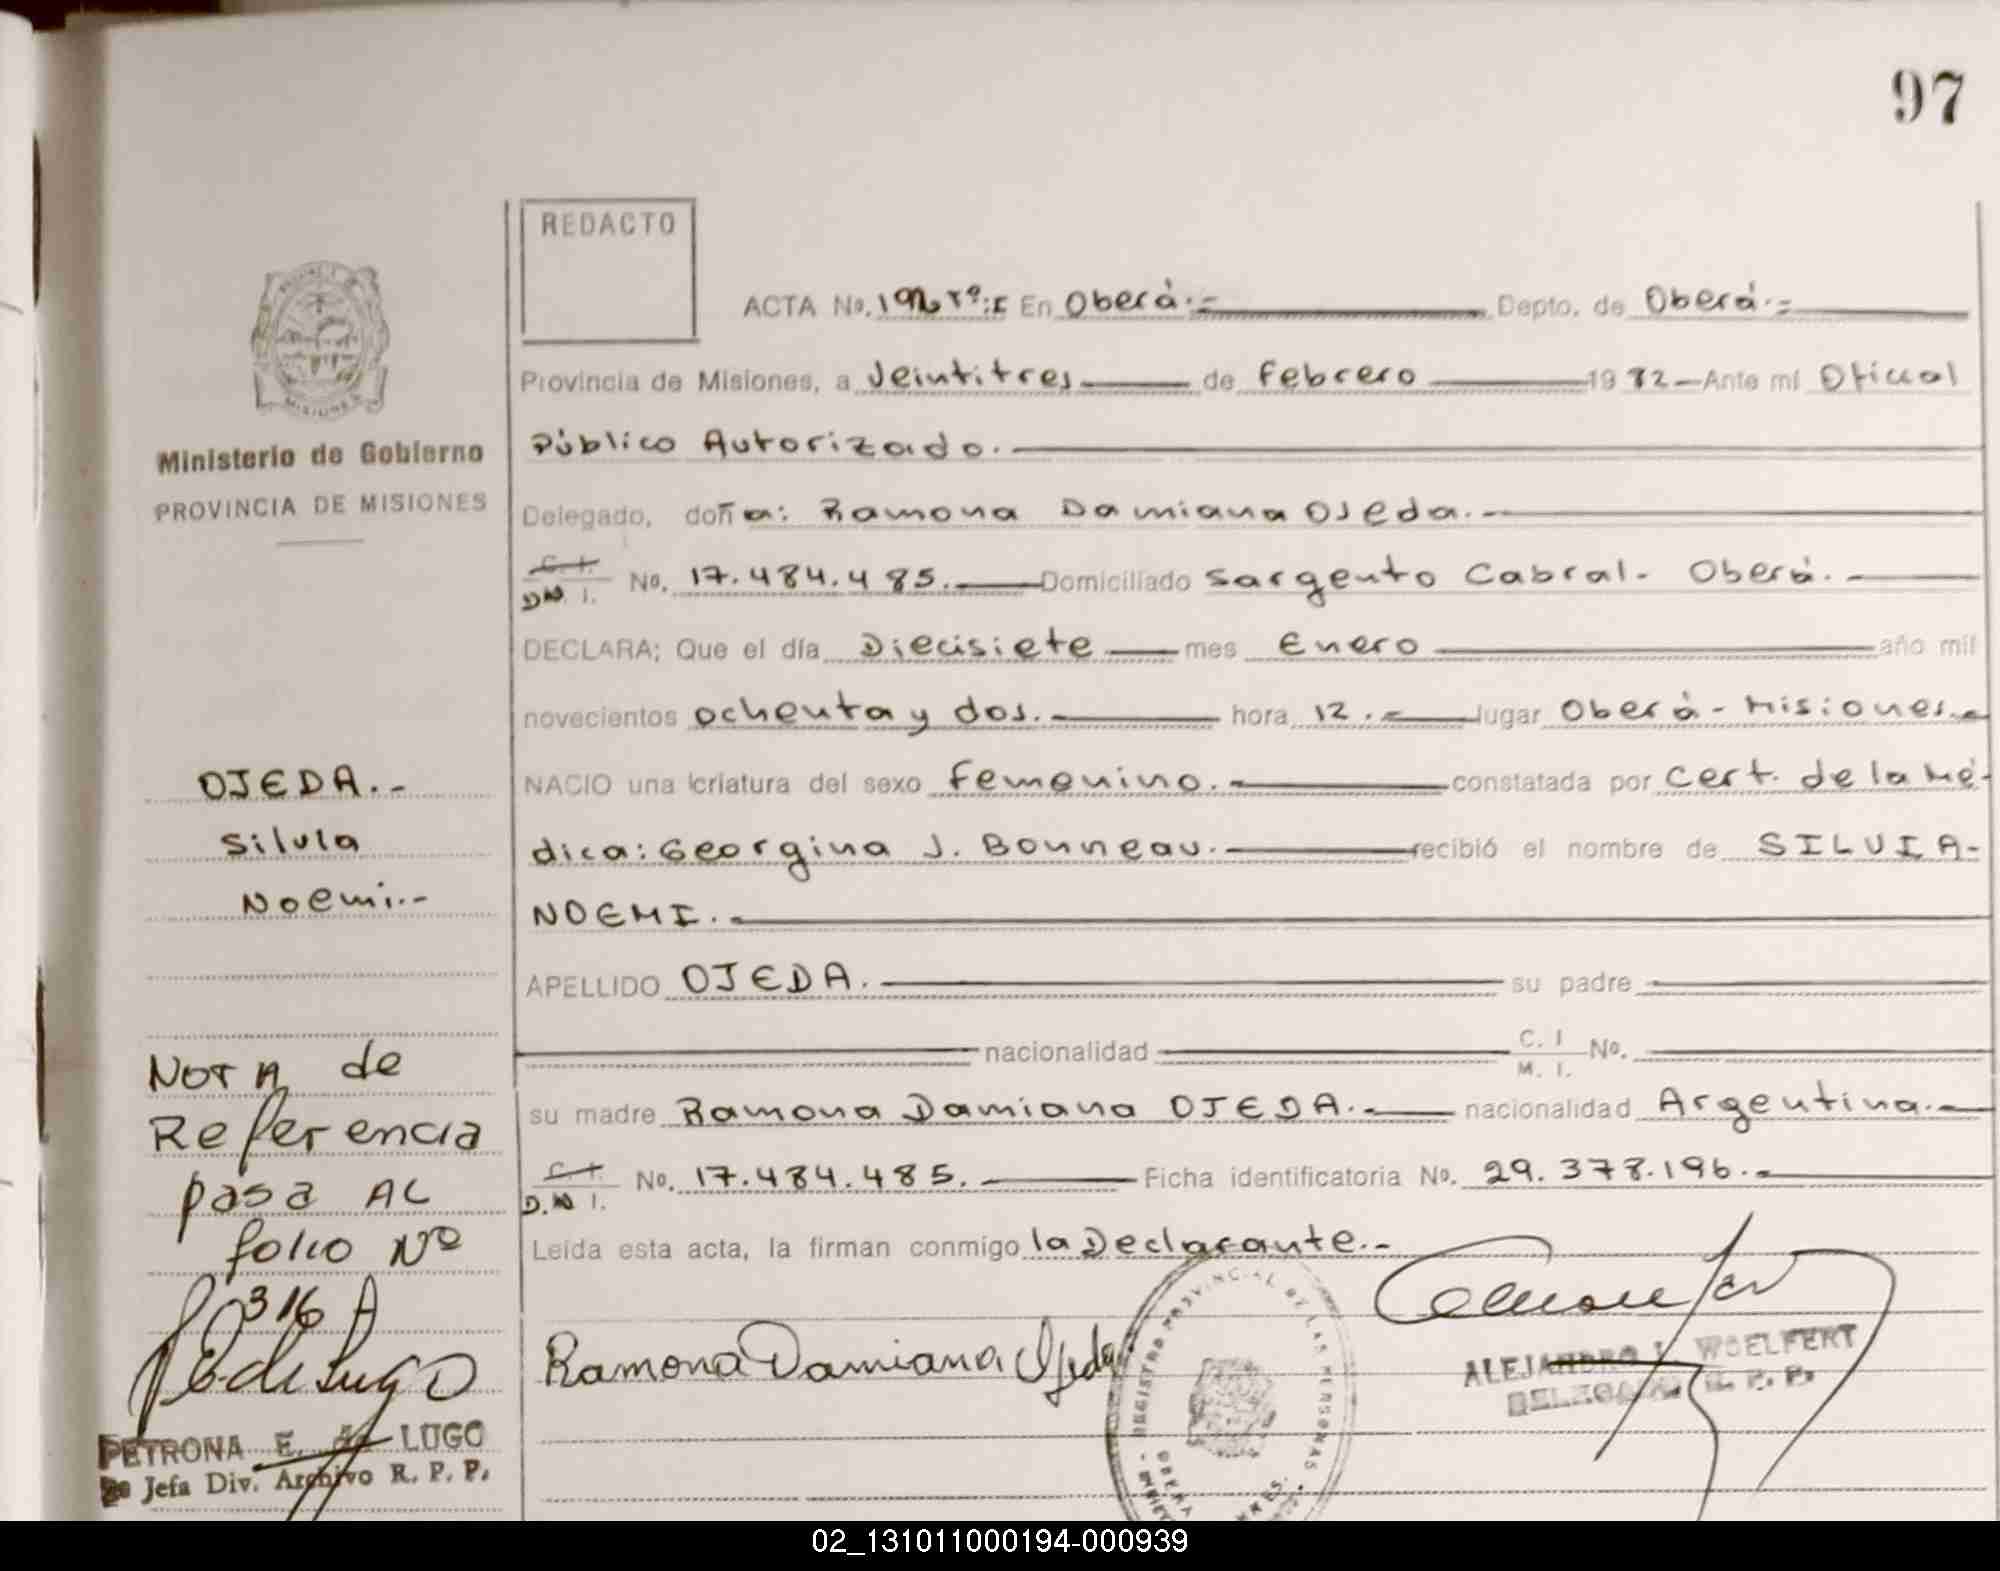 97
REDACTO
ACTA No. 192 Tº:I En Oberá.= Depto. de Oberá.=
Provincia de Misiones, a Veintitres de Febrero 1982 Ante mí Oficial
Público Autorizado.
Delegado, doña: Ramona Damiana Ojeda.-
C. I. DN. I. No. 17.484.485. Domiciliado Sargento Cabral- Oberá.-
DECLARA; Que el día Diecisiete mes Enero año mil
novecientos ochenta y dos. hora 12.- lugar Oberá - Misiones.-
NACIO una criatura del sexo Femenino. constatada por Cert. de la Mé-
dica: Georgina J. Bonneau. recibió el nombre de SILVIA-
NOEMI.-
APELLIDO OJEDA. su padre
nacionalidad C. I M. I. No.
su madre Ramona Damiana OJEDA.- nacionalidad Argentina.-
C. I. D.N I. No. 17.484.485. Ficha identificatoria No. 29.378.196.-
Leída esta acta, la firman conmigo la Declarante.-
Ramona Damiana Ojeda
REGISTRO PROVINCIAL DE LAS PERSONAS
OBERA
ALEJANDRO I. WOELFERT
DELEGADO R. P. P.
MISIONES
Ministerio de Gobierno
PROVINCIA DE MISIONES
OJEDA.-
Silvia
Noemi.-
NOTA de
Referencia
pasa AL
folio Nº
316 A
PETRONA E. de LUGO
Jefa Div. Archivo R. P. P.
02_131011000194-000939